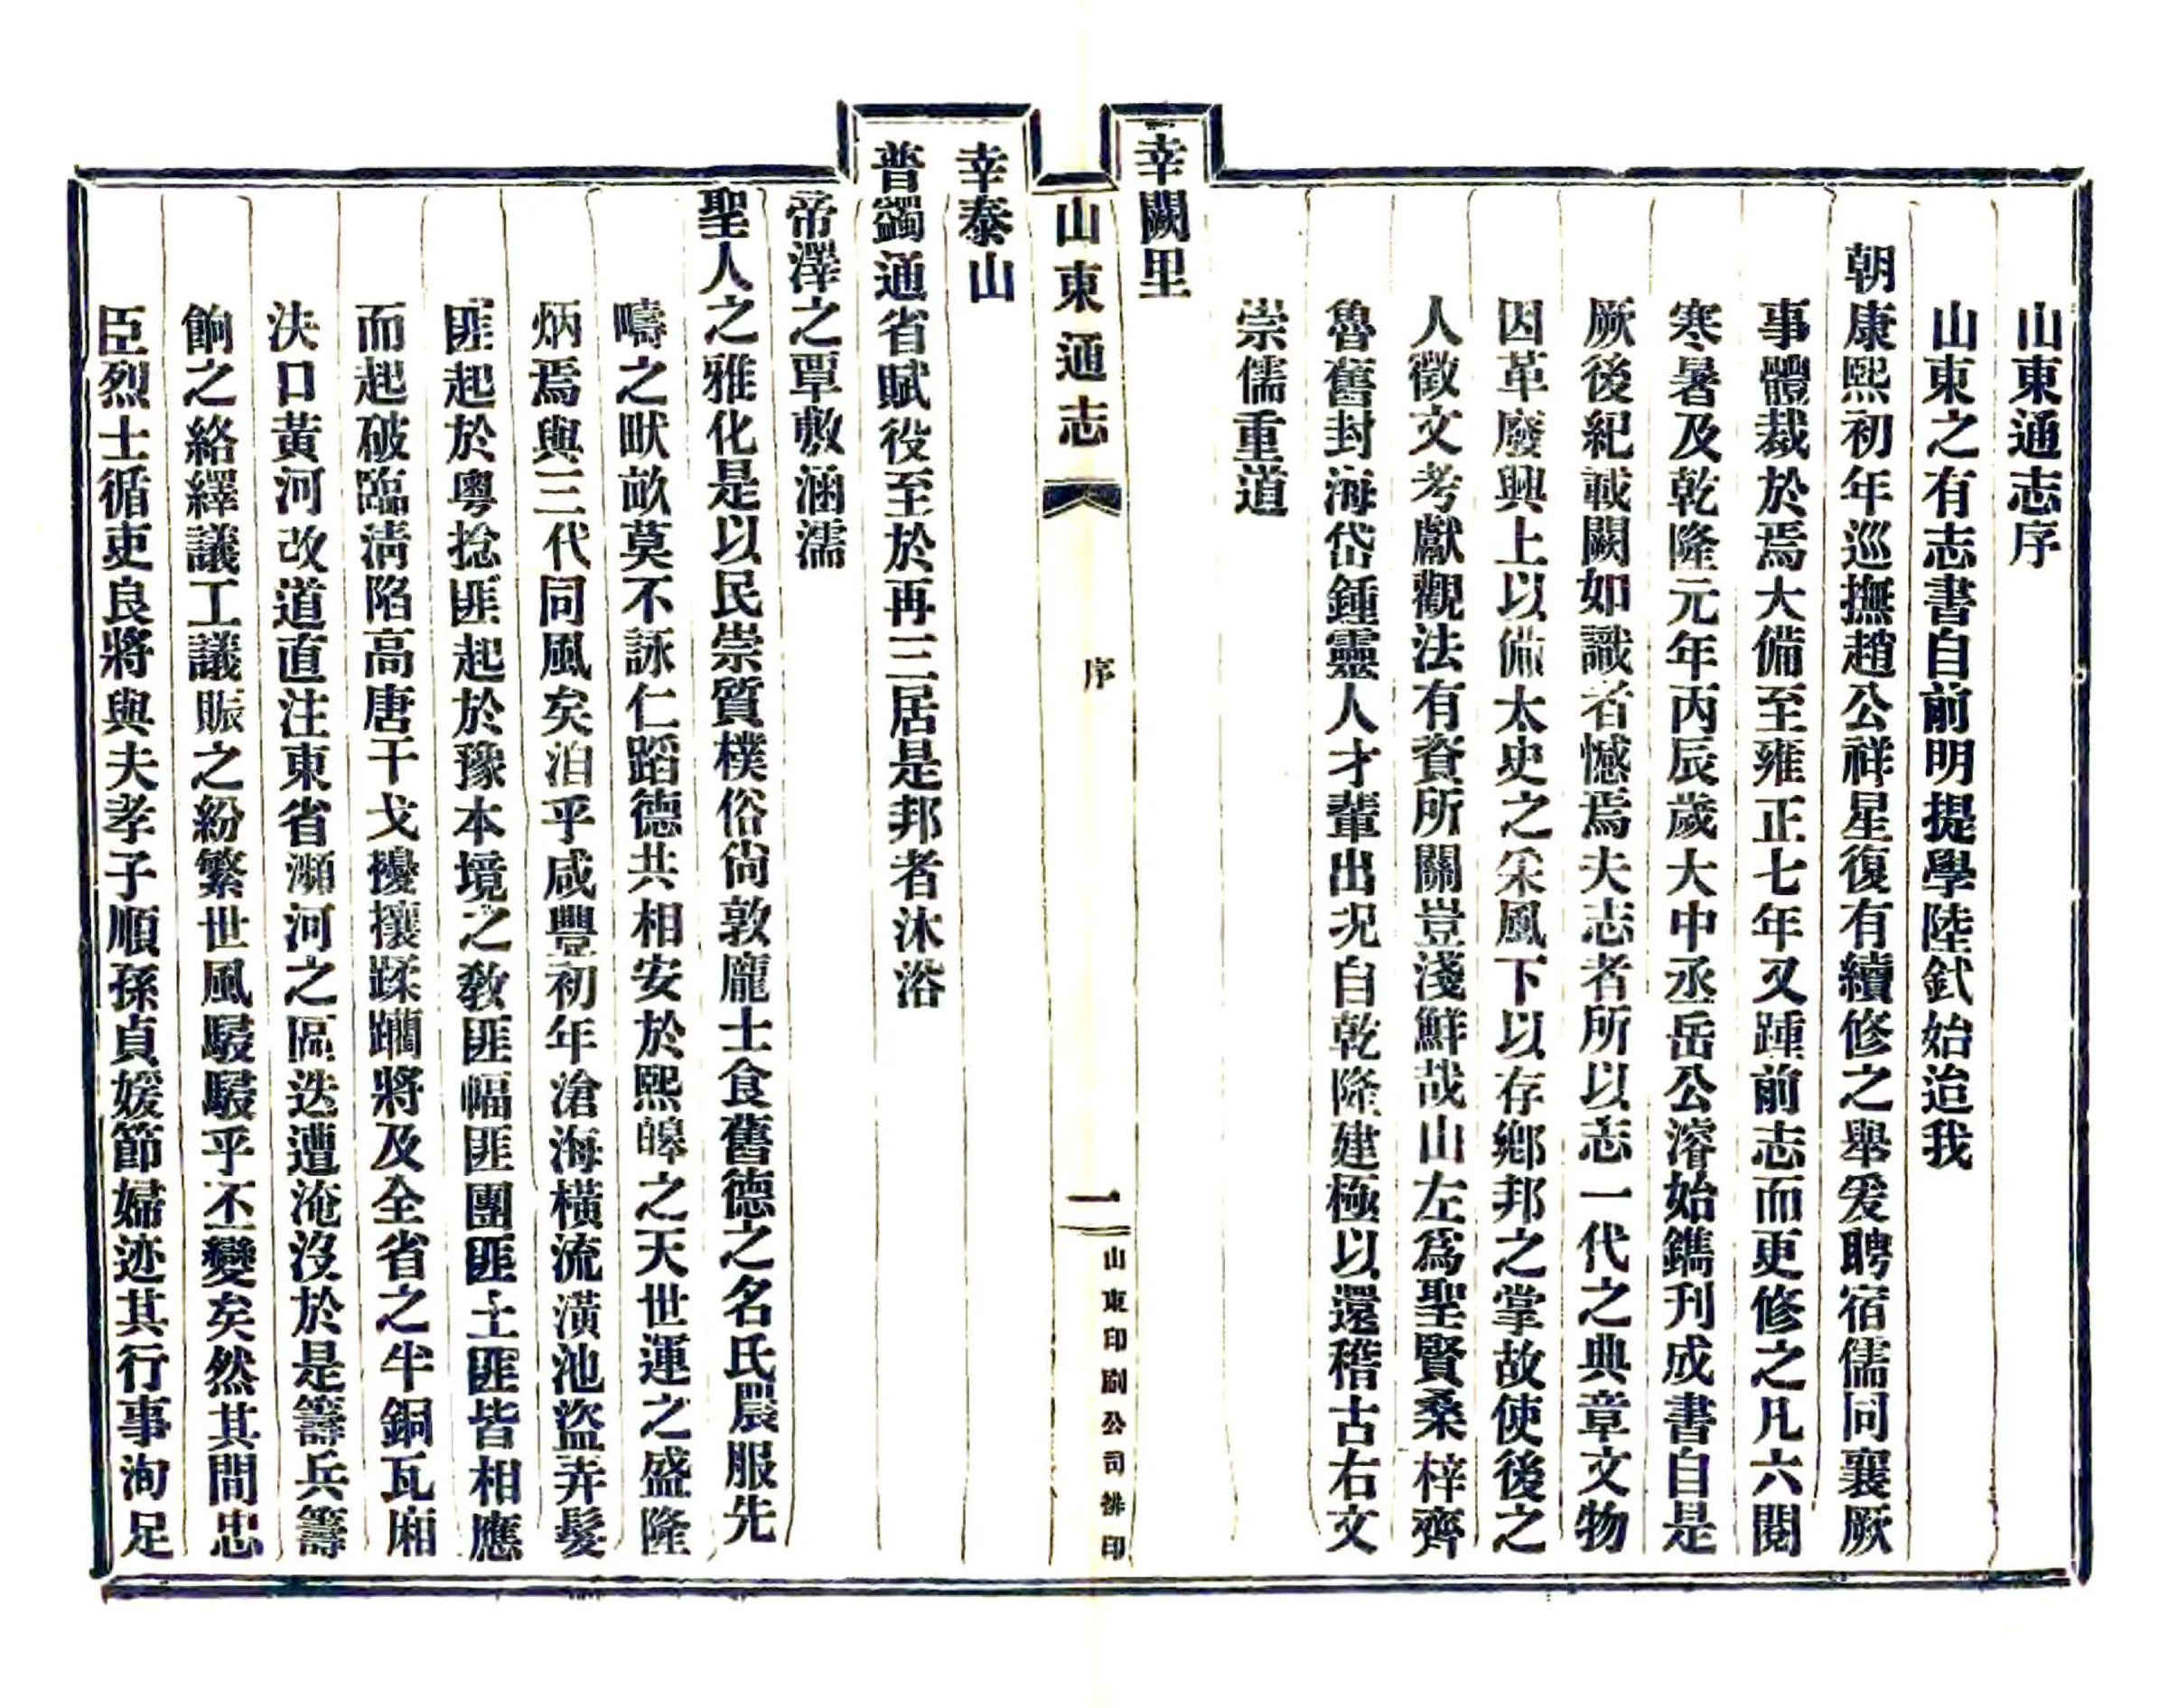 山東通志序
山東之有志書自前明提學陸釴始迨我
朝康熙初年巡撫趙公祥星復有續修之舉爰聘宿儒同襄厥
事體裁於焉大備至雍正七年又踵前志而更修之凡六閱
寒暑及乾隆元年丙辰歲大中丞岳公濬始鐫刊成書自是
厥後紀載闕如識者憾焉夫志者所以志一代之典章文物
因革廢興上以備太史之采風下以存鄉邦之掌故使後之
人徵文考獻觀法有資所關豈淺鮮哉山左爲聖賢桑梓齊
魯舊封海岱鍾靈人才輩出況自乾隆建極以還稽古右文
崇儒重道
幸闕里
山東通志
序
一
山東印刷公司排印
幸泰山
普蠲通省賦役至於再三居是邦者沐浴
帝澤之覃敷涵濡
聖人之雅化是以民崇質樸俗尙敦龐士食舊德之名氏農服先
疇之畎畝莫不詠仁蹈德共相安於熙皞之天世運之盛隆
炳焉與三代同風矣洎乎咸豐初年滄海橫流潢池盜弄髮
匪起於粵捻匪起於豫本境之敎匪幅匪團匪土匪皆相應
而起破臨淸陷高唐干戈擾攘蹂躪將及全省之半銅瓦廂
決口黃河改道直注東省瀕河之區迭遭淹沒於是籌兵籌
餉之絡繹議工議賑之紛繁世風駸駸乎丕變矣然其間忠
臣烈士循吏良將與夫孝子順孫貞媛節婦迹其行事洵足